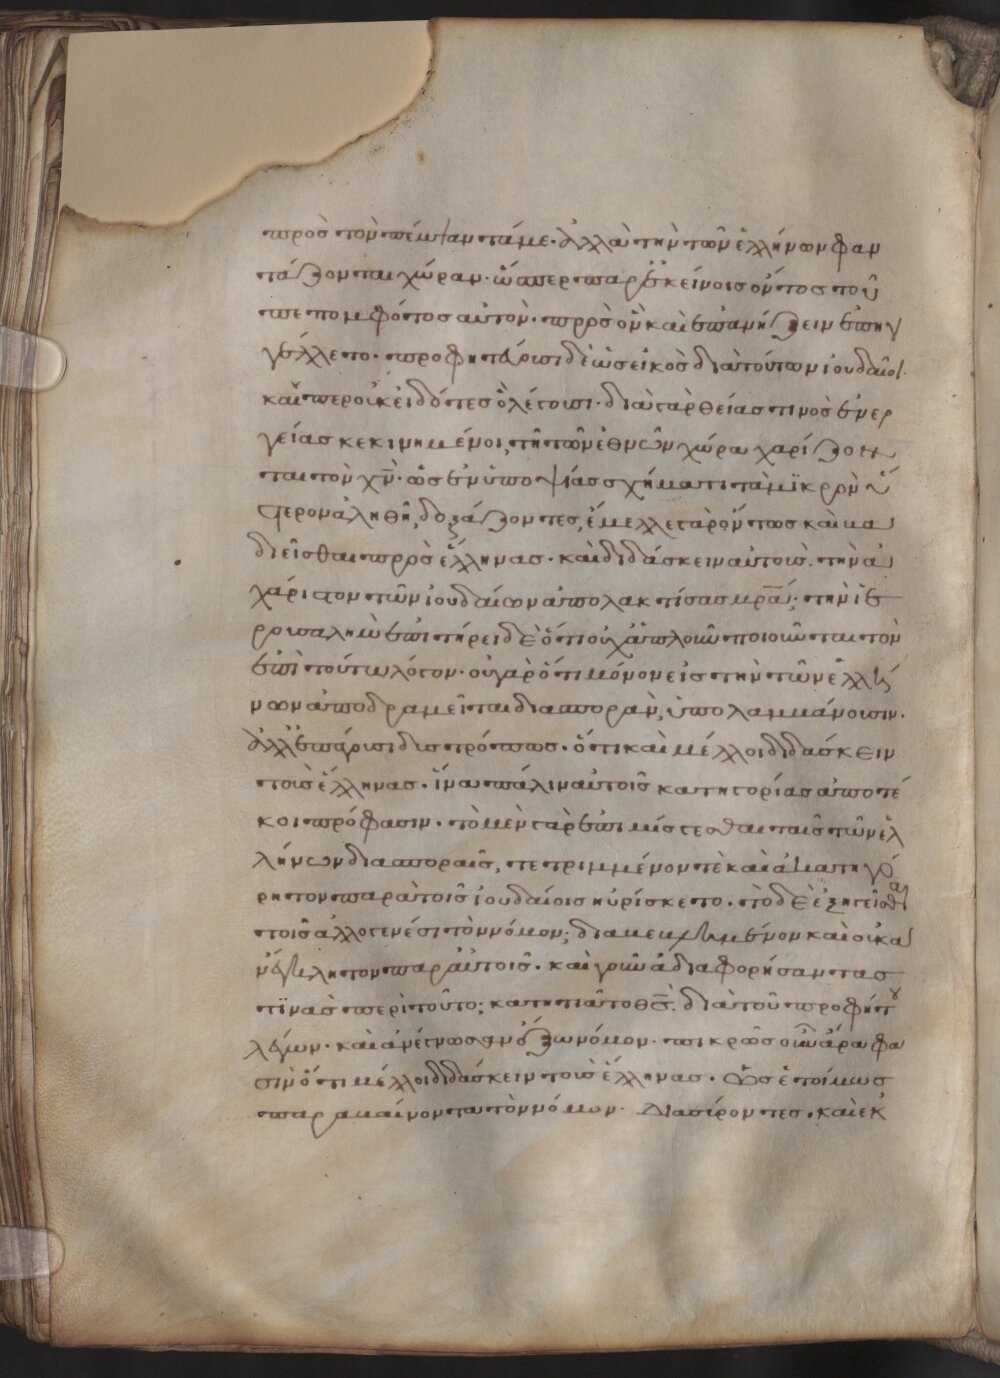 πρὸς τὸν πέμψαντά με· ἀλλὰ τὴν τῶν ἑλλήνων φαν
τάζονται χώραν· ὥσπερ παρ' ἐκείνοις ὄντος τοῦ
πεπομφότος αὐτὸν· πρὸς ὃν καὶ ἐπανήξειν ἐπηγ
γέλλετο· προφητεύουσι δὲ ὡς εἰκὸς διὰ τούτων ἰουδαῖοι·
καίπερ οὐκ εἰδότες ὃ λέγουσι· διὰ γὰρ θείας τινὸς ἐνερ
γείας κεκινημένοι, τῆ τῶν ἐθνῶν χώρα χαρίζον
ται τὸν χν· ὡς ἐν ὑποψίας σχήματι τὸ μικρὸν ὕ
στερον ἀληθῆ, δοξάζοντες, ἔμελλε γὰρ ὄντως καὶ
διεῖσθαι πρὸς ἕλληνας· καὶ διδάσκειν αὐτοὺς· τὴν ἀ
χάριστον τῶν ἰουδαίων ἀπολακτίσας μρα· τὴν ἱε
ρουσαλὴμ ἐπιτήρει δὲ ὅτι οὐχ ἁπλοῦν ποιοῦνται τὸν
ἐπὶ τούτω λόγον· οὐ γὰρ ὅτι μόνον εἰς τὴν τῶν ἑλλή
νων ἀποδραμεῖται διασπορὰν, ὑπολαμβάνουσιν·
ἀλλ' ἐπάγουσι δις τρόπως· ὅτι καὶ μέλλοι διδάσκειν
τοὺς ἕλληνας· ἵνα πάλιν αὐτοῖς κατηγορίας ἀποτέ
κοι πρόφασιν· τὸ μὲν γὰρ ἐπιμίσγεσθαι ταῖς τῶν ἑλ
λήνων διασποραῖς, τετριμμένον τὲ καὶ ἀκατηγό
ρητον παρὰ τοῖς ἰουδαίοις ηὑρίσκετο· τὸ δὲ ἐξηγεῖσθαι
τοῖς ἀλλογενέσι τὸν νόμον;
παρ' αὐτοῖς· καὶ γοῦν ἀδιαφορήσαντας
τινὰς περὶ τοῦτο; κατητιᾶτο θς· διὰ τοῦ προφήτου
λέγων· καὶ ἀνέγνωσαν ἔξω νόμον· πικρῶς οὖν ἄρα φα
σὶν ὅτι μέλλοι διδάσκειν τοὺς ἕλληνας· ὡς ἑτοίμως
παραβαίνοντα τὸν νόμον· Διασύροντες· καὶ ἐκ